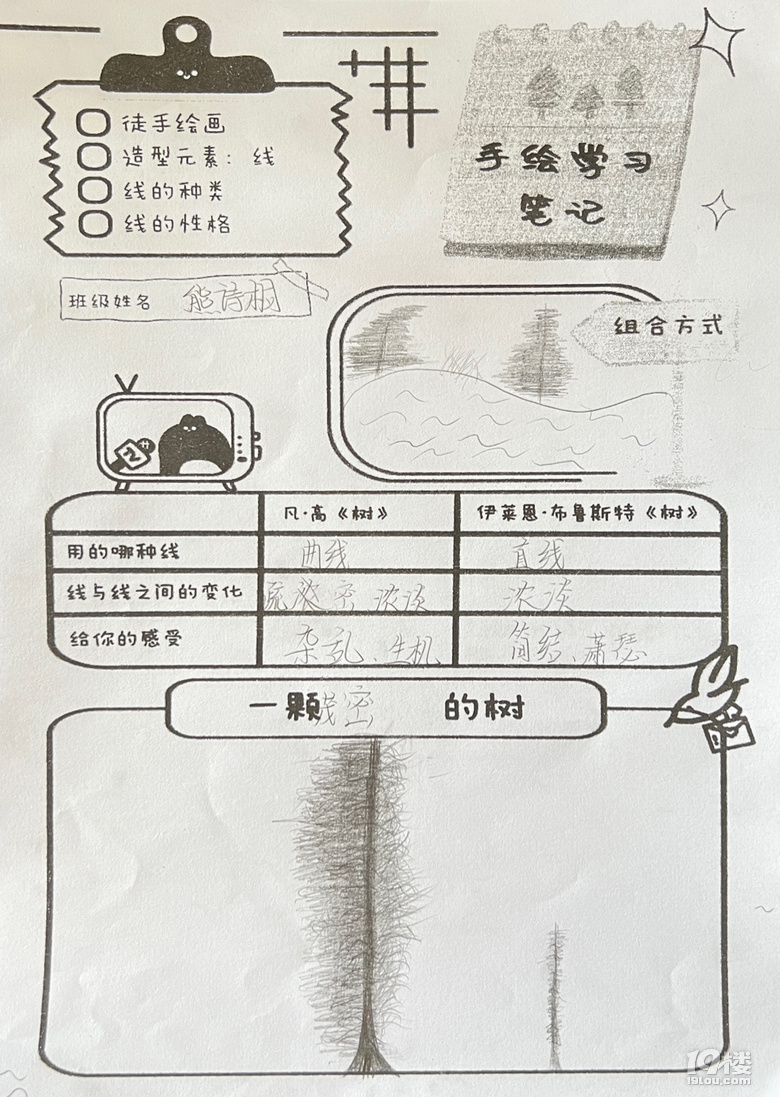 徒手绘画
造型元素：线
线的种类
线的性格
手绘学习
笔记
班级姓名 熊诗桐
组合方式
凡·高《树》 伊莱恩·布鲁斯特《树》
用的哪种线 曲线 直线
线与线之间的变化 疏密 浓淡 浓淡
给你的感受 杂乱、生机 简结、萧瑟
一颗 密 的树
19楼
19lou.com